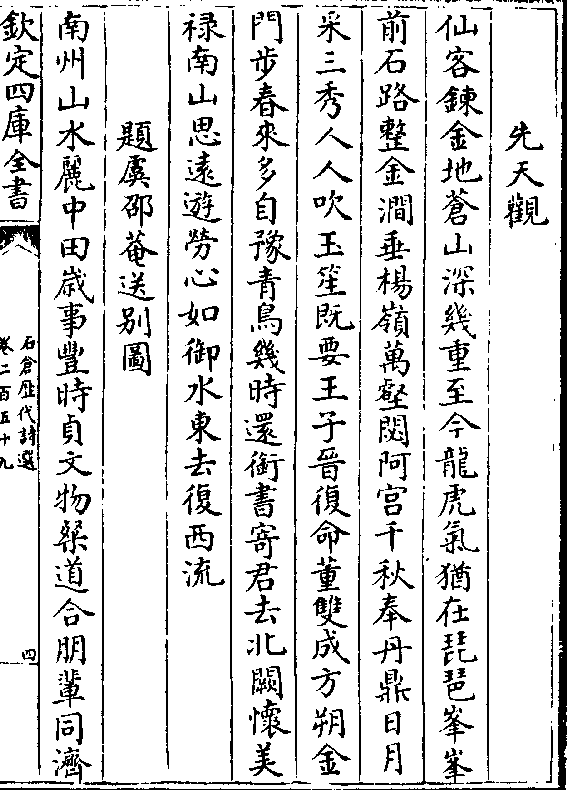 先天觀
仙客鍊金地蒼山深幾重至今龍虎氣猶在琵琶峯峯
前石路整金澗垂楊嶺萬壑閟阿宫千秋奉丹鼎日月
采三秀人人吹玉笙既要王子晉復命董雙成方朔金
門步春來多自豫青鳥幾時還銜書寄君去北闕懷美
禄南山思遠遊勞心如御水東去復西流
題虞邵菴送别圖
南州山水麗中田歳事豐時貞文物粲道合朋輩同濟
欽定四庫全書
石倉歷代詩選
卷二百五十九
四